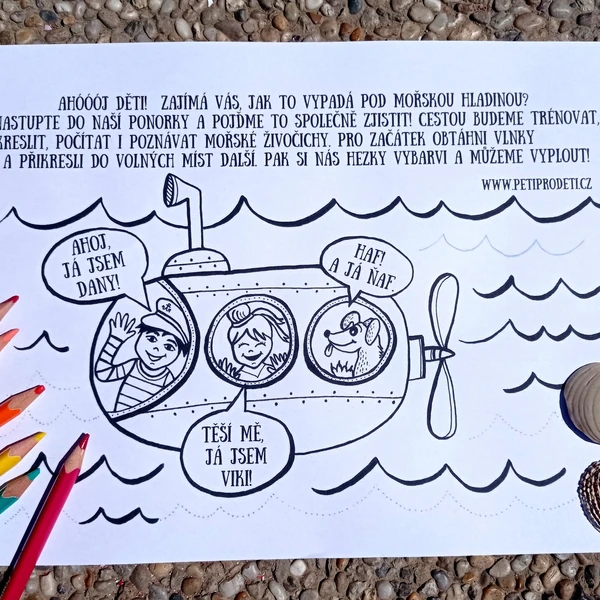 AHÓÓÓJ DĚTI! ZAJÍMÁ VÁS, JAK TO VYPADÁ POD MOŘSKOU HLADINOU?
NASTUPTE DO NAŠÍ PONORKY A POJĎME TO SPOLEČNĚ ZJISTIT! CESTOU BUDEME TRÉNOVAT,
KRESLIT, POČÍTAT I POZNÁVAT MOŘSKÉ ŽIVOČICHY. PRO ZAČÁTEK OBTÁHNI VLNKY
A PŘIKRESLI DO VOLNÝCH MÍST DALŠÍ. PAK SI NÁS HEZKY VYBARVI A MŮŽEME VYPLOUT!
WWW.PETIPRODETI.CZ
AHOJ,
JÁ JSEM
DANY!
HAF!
A JÁ ŇAF
TĚŠÍ MĚ,
JÁ JSEM
VIKI!